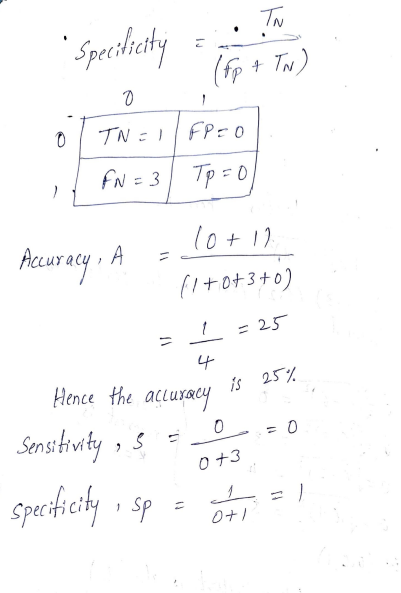 Specificity = TN / (Fp + TN)
0 1
0 TN = 1 FP = 0
1 FN = 3 Tp = 0
Accuracy, A = (0 + 1) / (1+0+3+0)
= 1 / 4 = 25
Hence the accuracy is 25%.
Sensitivity, S = 0 / 0+3 = 0
Specificity, Sp = 1 / 0+1 = 1